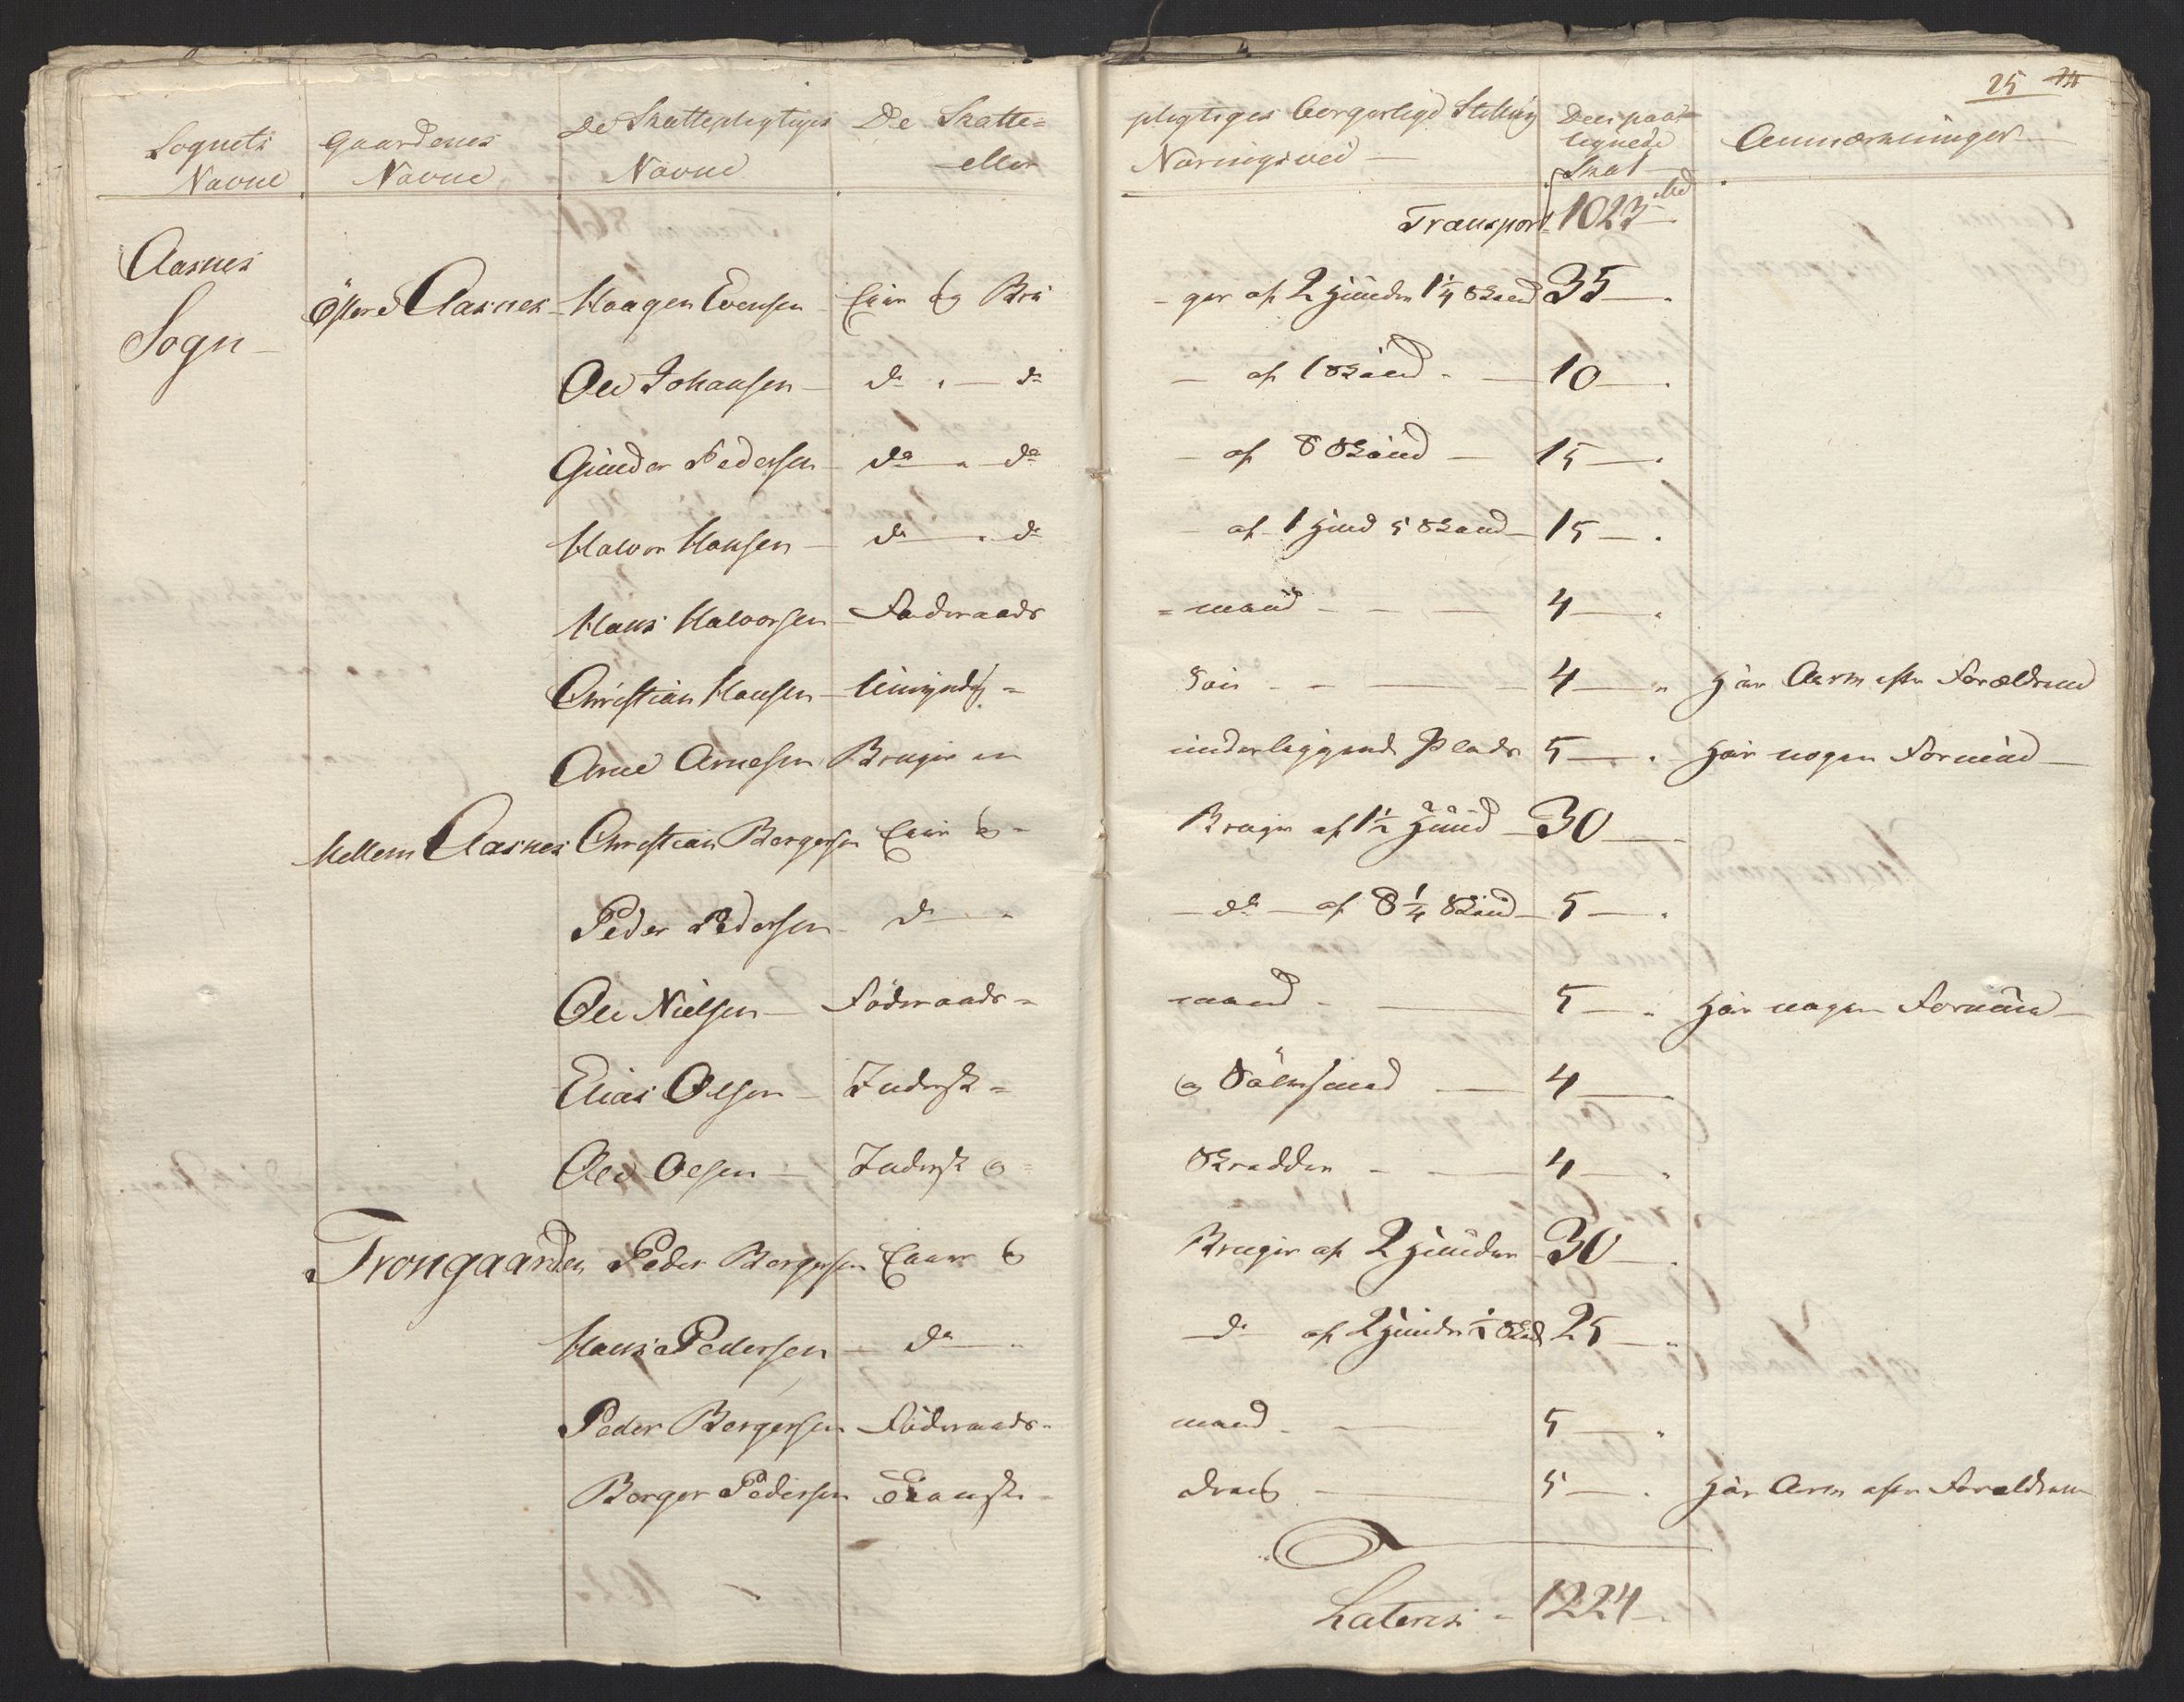 25
Sognets Navne
Gaardenes Navne
De Skattepligtiges Navne
De Skatte= eller
pligtiges borgerlige Stilling Næringsvei
Den paalignede Skat
Anmærkninger
Transport 1023
Aasnes Sogn
Östere Aasnes Haagen Evensen Eier og Bru -ger af 2 Huuder 1¼ Skind 35
Ole Johansen do do af 1 Skind 10
Gunder Pedersen do do af 8 Skind 15
Halvor Hansen do do af 1 Huud 5 Skind 15
Hans Halvorsen Föderaads =mand 4
Christian Hansen Umyndig= 4 Har Arv efter Forældrene
Arne Arnesen Bruger en underliggende Plads 5 Har nogen Formue
Mellem Aasnes Christian Bergersen Eier & Bruger af 1½ Huud 30
Peder Pedersen do do af 8¼ Skind 5
Ole Nielsen Föderaads= mand 5 Har nogen Formue
Elias Olsen Inderst= & 4
Ole Olsen Inderst & Skrædder 4
Trongaarden Peder Bergersen Eier & Bruger af 2 Huuder 30
Hans Pedersen do do af 2 Huuder 25
Peder Bergersen Föderaads= mand 5
Berger Pedersen 5 Har Arv efter Forældrene
Lateris 1224